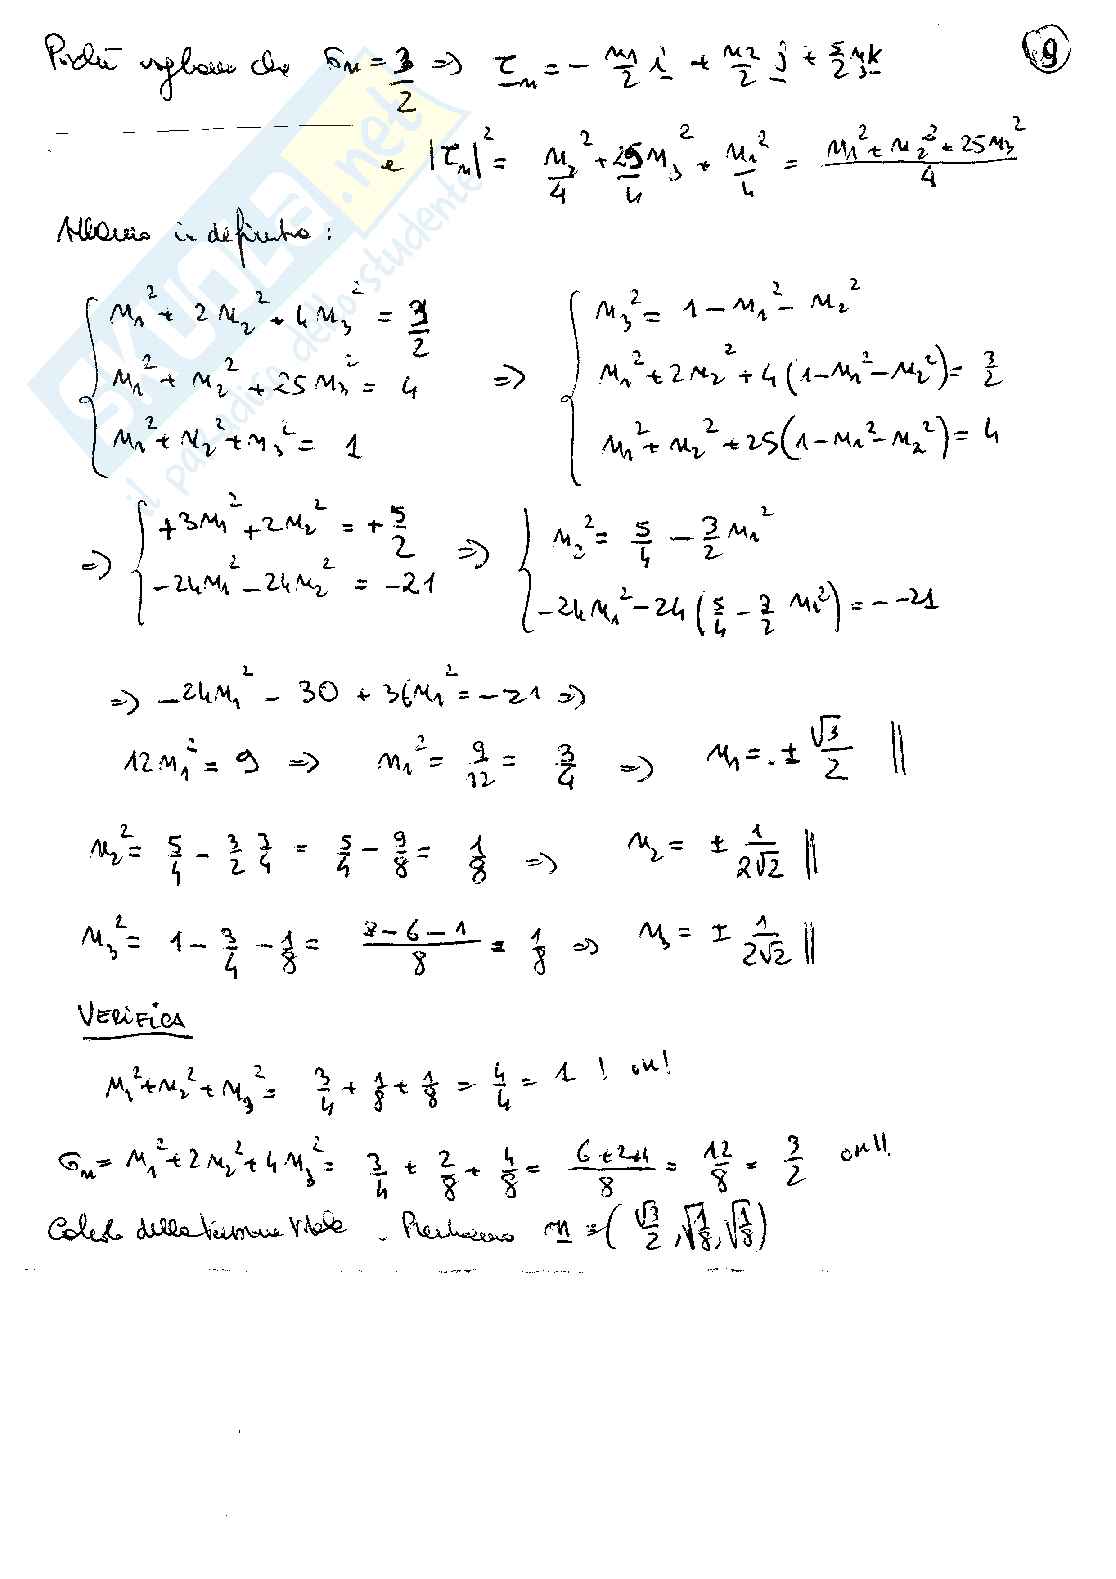 Poiché vogliamo che σn = 3/2 => τn = - n1/2 i + n2/2 j + 5/2 n3 k
9
e |τn|² = n2²/4 + 25/4 n3² + n1²/4 = (n1² + n2² + 25n3²)/4
Abbiamo in definitiva:
{ n1² + 2n2² + 4n3² = 3/2
n1² + n2² + 25n3² = 4
n1² + n2² + n3² = 1
=> { n3² = 1 - n1² - n2²
n1² + 2n2² + 4(1 - n1² - n2²) = 3/2
n1² + n2² + 25(1 - n1² - n2²) = 4
=> { +3n1² + 2n2² = +5/2
-24n1² - 24n2² = -21
=> { n2² = 5/4 - 3/2 n1²
-24n1² - 24(5/4 - 3/2 n1²) = - -21
=> -24n1² - 30 + 36n1² = -21 =>
12n1² = 9 => n1² = 9/12 = 3/4 => n1 = ± √3/2 ||
n2² = 5/4 - 3/2 3/4 = 5/4 - 9/8 = 1/8 => n2 = ± 1/2√2 ||
n3² = 1 - 3/4 - 1/8 = (8-6-1)/8 = 1/8 => n3 = ± 1/2√2 ||
VERIFICA
n1² + n2² + n3² = 3/4 + 1/8 + 1/8 = 4/4 = 1 ! ok!
σn = n1² + 2n2² + 4n3² = 3/4 + 2/8 + 4/8 = (6+2+4)/8 = 12/8 = 3/2 ok!!
Calcolo della tensione totale. Prendiamo n = (√3/2, √1/8, √1/8)
SKUOLA.net
il paradiso dello studente